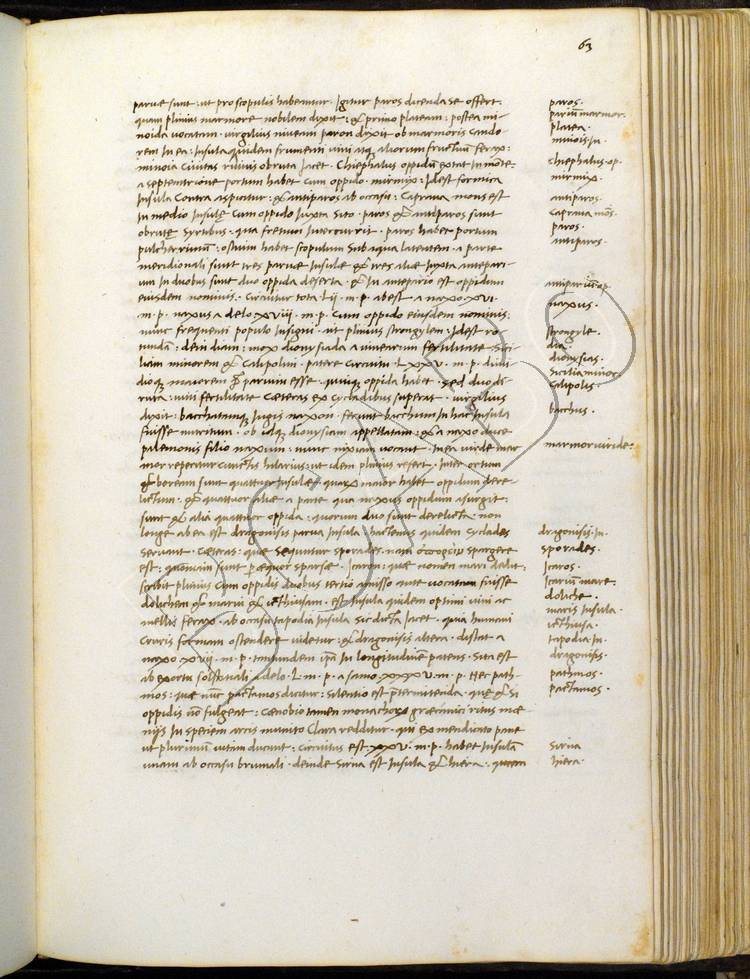 63
paruæ sunt: ut pro scopulis habeantur. Igitur paros dicenda se offert:
quam plinius marmore nobilem dixit: & primo plateam: postea mi-
noida uocatam. uirgilius niueam paron dixit ob marmoris cando-
rem In ea: Insula quidem frumenti uini atq aliorum fructuum ferax:
minoia ciuitas ruinis obruta Iacet. Chiephalus oppidũ extat In mõte:
a septemtrione portum habet cum oppido. mirmix: Idest formica
Insula Contra aspicitur: & antiparos ab occasu: Caprana mons est
In medio Insulę cum oppido Iuxta sito. paros & antiparos sunt
obrutę Syrtibus. qua fretum Intercurrit. paros habet portum
pulcherrimum: ostium habet scopulum Sub aqua latentem. a parte
meridionali sunt tres paruæ Insulæ & tres aliæ Iuxta antepari-
um In duobus sunt duo oppida deserta. & In antepario est oppidum
eiusdem nominis. Circuitur tota Lii. m. p. abest a naxo XVI.
m. p. naxus a delo XVIII. m. p. Cum oppido eiusdem nominis;
nunc frequenti populo Insigni. ut plinius strongylem: Idest ro-
tundã: dein diam: mox dionysiada a uinearum fertilitate. Sici-
liam minorem & Calipolim. patere circuitu. LXXV. m. p. dimi-
dioq maiorem parum esse. quinq oppida habet. sed duo di-
ruta: uini fertilitate Cæteras ex cycladibus superat. uirgilius
dixit: bacchatamq Iugis naxon. ferunt bacchum In hac Insula
fuisse nutritum. ob idq dionysiam appellatam: & a naxo duce
palemonis filio naxum: nunc nixiam uocant. In ea uiride mar
mor reperitur cunctis hilarius: ut idem plinius refert. Inter ortum
& boream sunt quattuor Insulæ: quarũ maior habet oppidum dere-
lictum. & quattuor aliæ a parte qua naxus oppidum asurgit:
sunt & alia quattuor oppida: quorum duo sunt derelicta. non
longe ab ea est dragonisis parua Insula hactenus quidem cyclades
seruant. Cæteras: quæ sequuntur sporades. nam spargere
est: quoniam sunt per æquor sparsæ. Icaron: quæ nomen mari dedit:
scribit plinius Cum oppidis duobus tertio amisso ante uocatam fuisse
dolichem & marin & icthiusam. est Insula quidem optimi uini ac
mellis ferax. ab occasu tapodia Insula sic dicta Iacet. quia humani
Cruris formam ostendere uidetur: & dragonisis altera. distat a
naxo XVII. m. p. tantundem ipsa In longitudinẽ patens. Sita est
ab exortu solstitiali a delo. L. m. p. a samo XXXV. m. p. Hec path-
mos: quæ nũc pactamos dicitur: silentio est prętermittenda. quę & si
oppidis nõ fulgeat: cœnobio tamen monachorũ græcanici ritus mœ
nijs In speciem arcis munito Clara redditur. qui ex mendicato pane
ut plurimum uitam ducunt: circuitus est XXV. m. p. habet Insulã
unam ab occasu brumali. deinde Siria est Insula & hiera: quam
paros.
pariũ marmor.
platea.
minois In.
chiephalus op.
mirmix.
antiparos.
caprana mõs.
paros.
antiparos.
antiparium op.
naxus.
strongyle.
dia.
dionysias.
Sicilia minor.
calipolis.
bacchus.
marmor uiride:
dragonisis. In.
sporades.
Icaros.
Icariũ mare:
doliche.
maris Insula.
icthiusa.
tapodia. In.
dragonisis.
pathmos.
pactamos.
Siria
hiera.